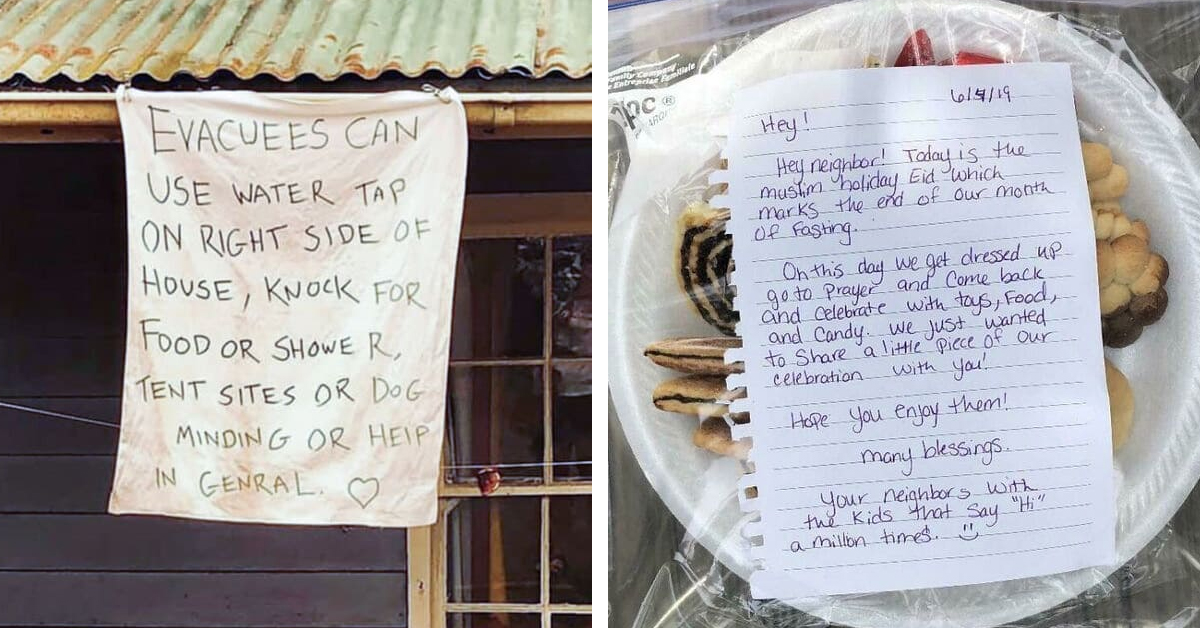 EVACUEES CAN
USE WATER TAP
ON RIGHT SIDE OF
HOUSE, KNOCK FOR
FOOD OR SHOWER,
TENT SITES OR DOG
MINDING OR HElP
IN GENRAL. ♡
6/4/19
Hey!
Hey neighbor! Today is the
muslim holiday Eid which
marks the end of our month
of Fasting.
On this day we get dressed up
go to Prayer and Come back
and celebrate with toys, Food,
and Candy. We just wanted
to Share a little Piece of our
celebration with you!
Hope you enjoy them!
many blessings.
Your neighbors with
the Kids that Say "Hi"
a millon times. :)
Family Company
Entreprise Familiale